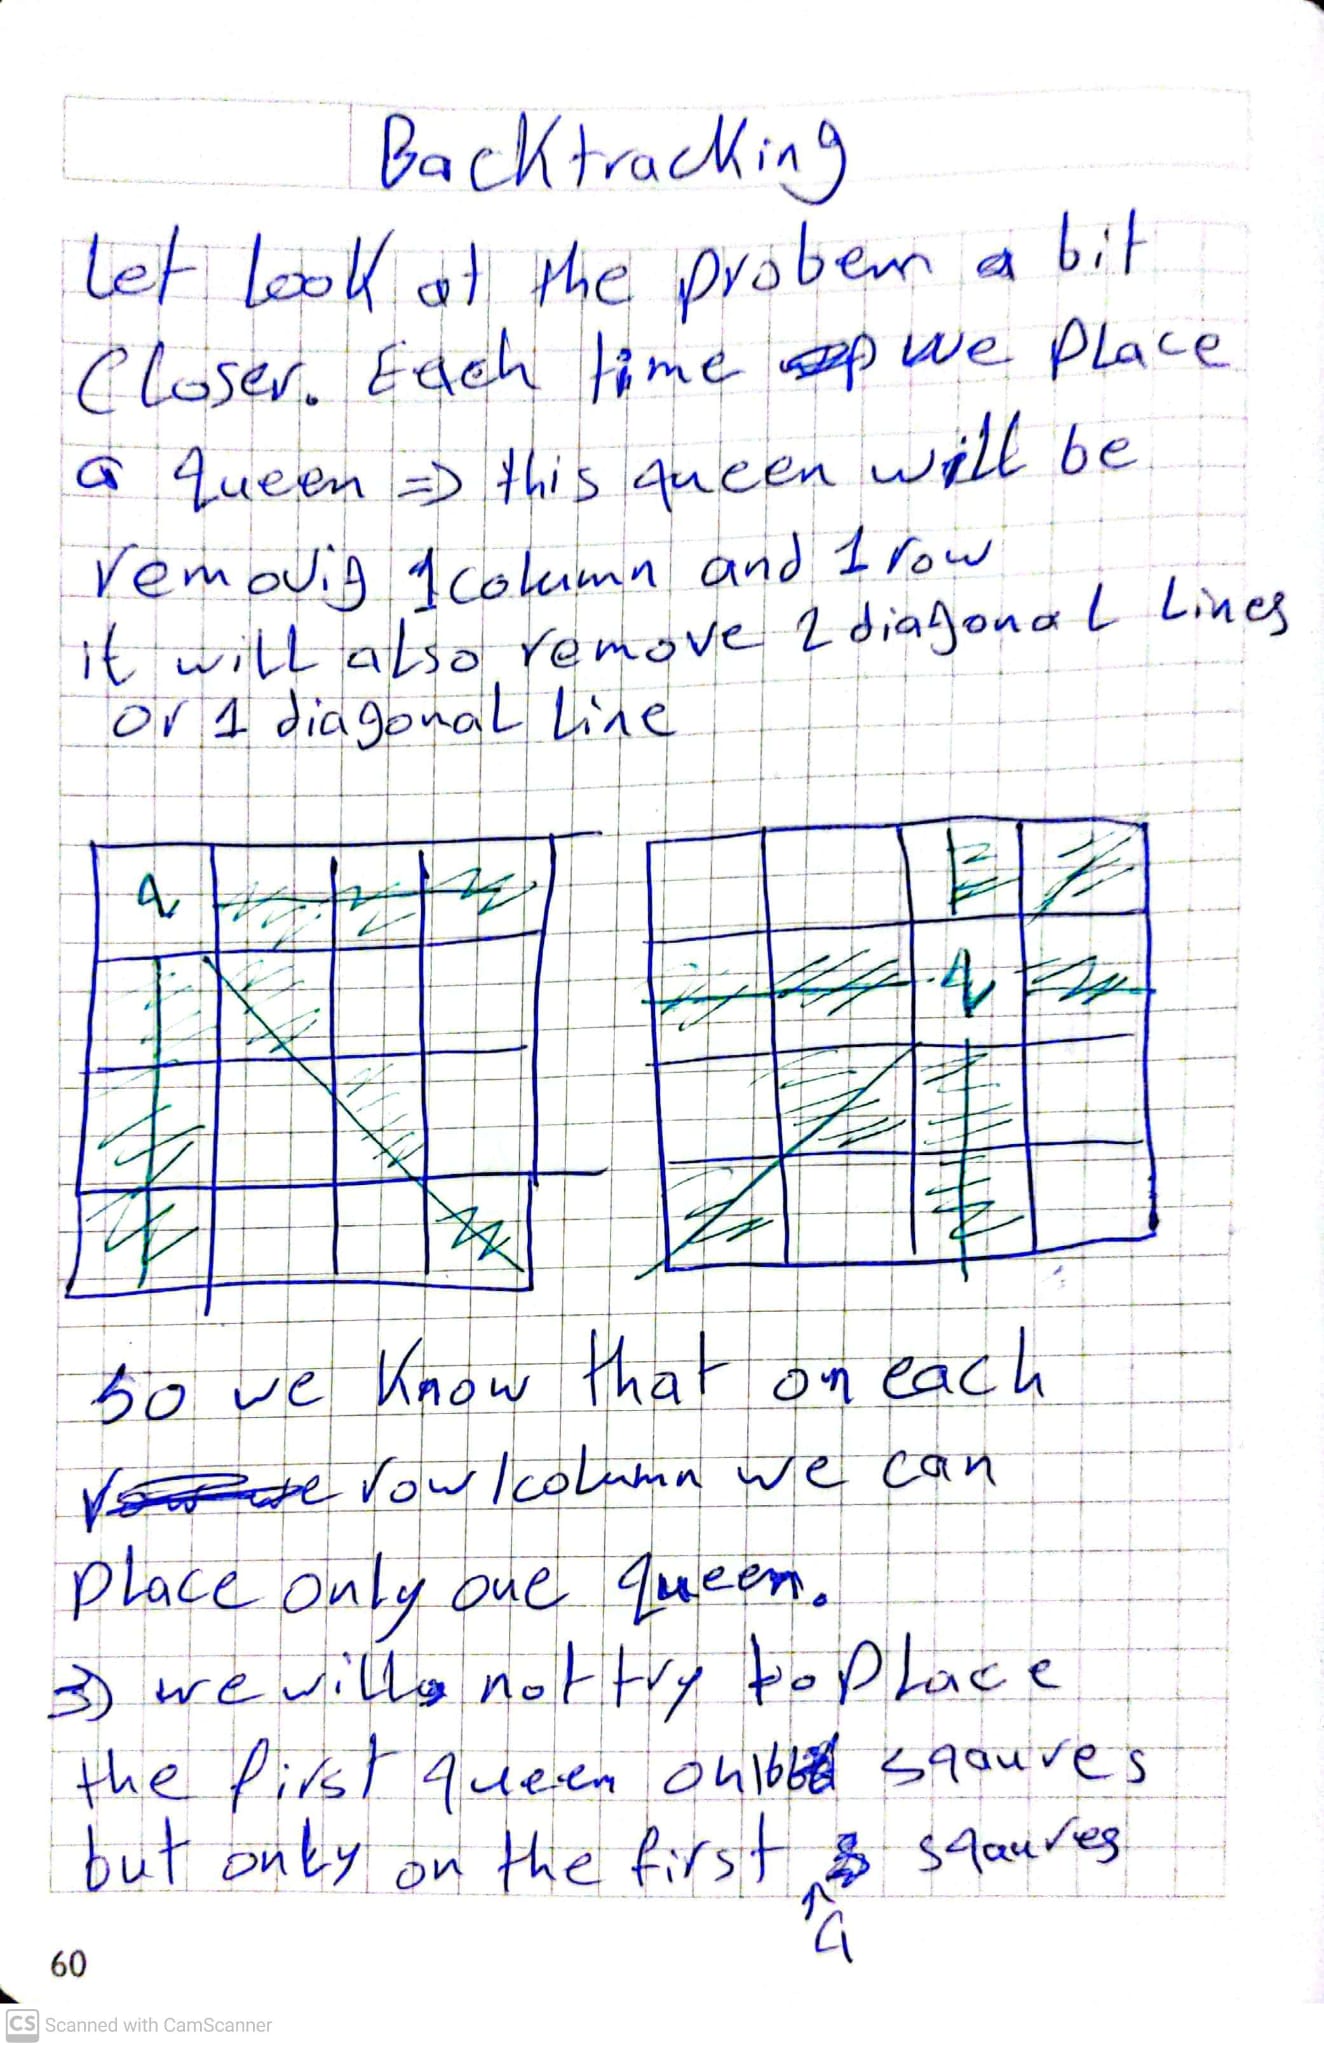 Backtracking
Let look at the probem a bit
Closer. Each time we place
a queen => this queen will be
removig 1 column and 1 row
it will also remove 2 diagonal lines
or 1 diagonal line
so we know that on each
row/column we can
place only one queen.
=> we will not try to place
the first queen on 16 sqaures
but only on the first sqaures
4
60
CS Scanned with CamScanner